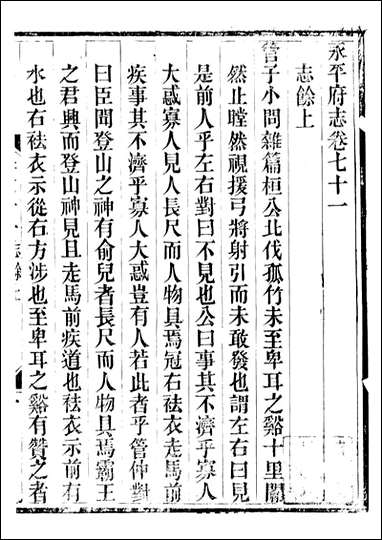 永平府志卷七十一
志餘上
管子小問雜篇桓公北伐孤竹未至卑耳之谿十里闟
然止瞠然視援弓將射引而未敢發也謂左右曰見
是前人乎左右對曰不見也公曰事其不濟乎寡人
大惑寡人見人長尺而人物具焉冠右袪衣走馬前
疾事其不濟乎寡人大惑豈有人若此者乎管仲對
曰臣聞登山之神有俞兒者長尺而人物具焉霸王
之君興而登山神見且走馬前疾道也袪衣示前有
水也右袪衣示從右方涉也至卑耳之谿有贊之者
志餘上